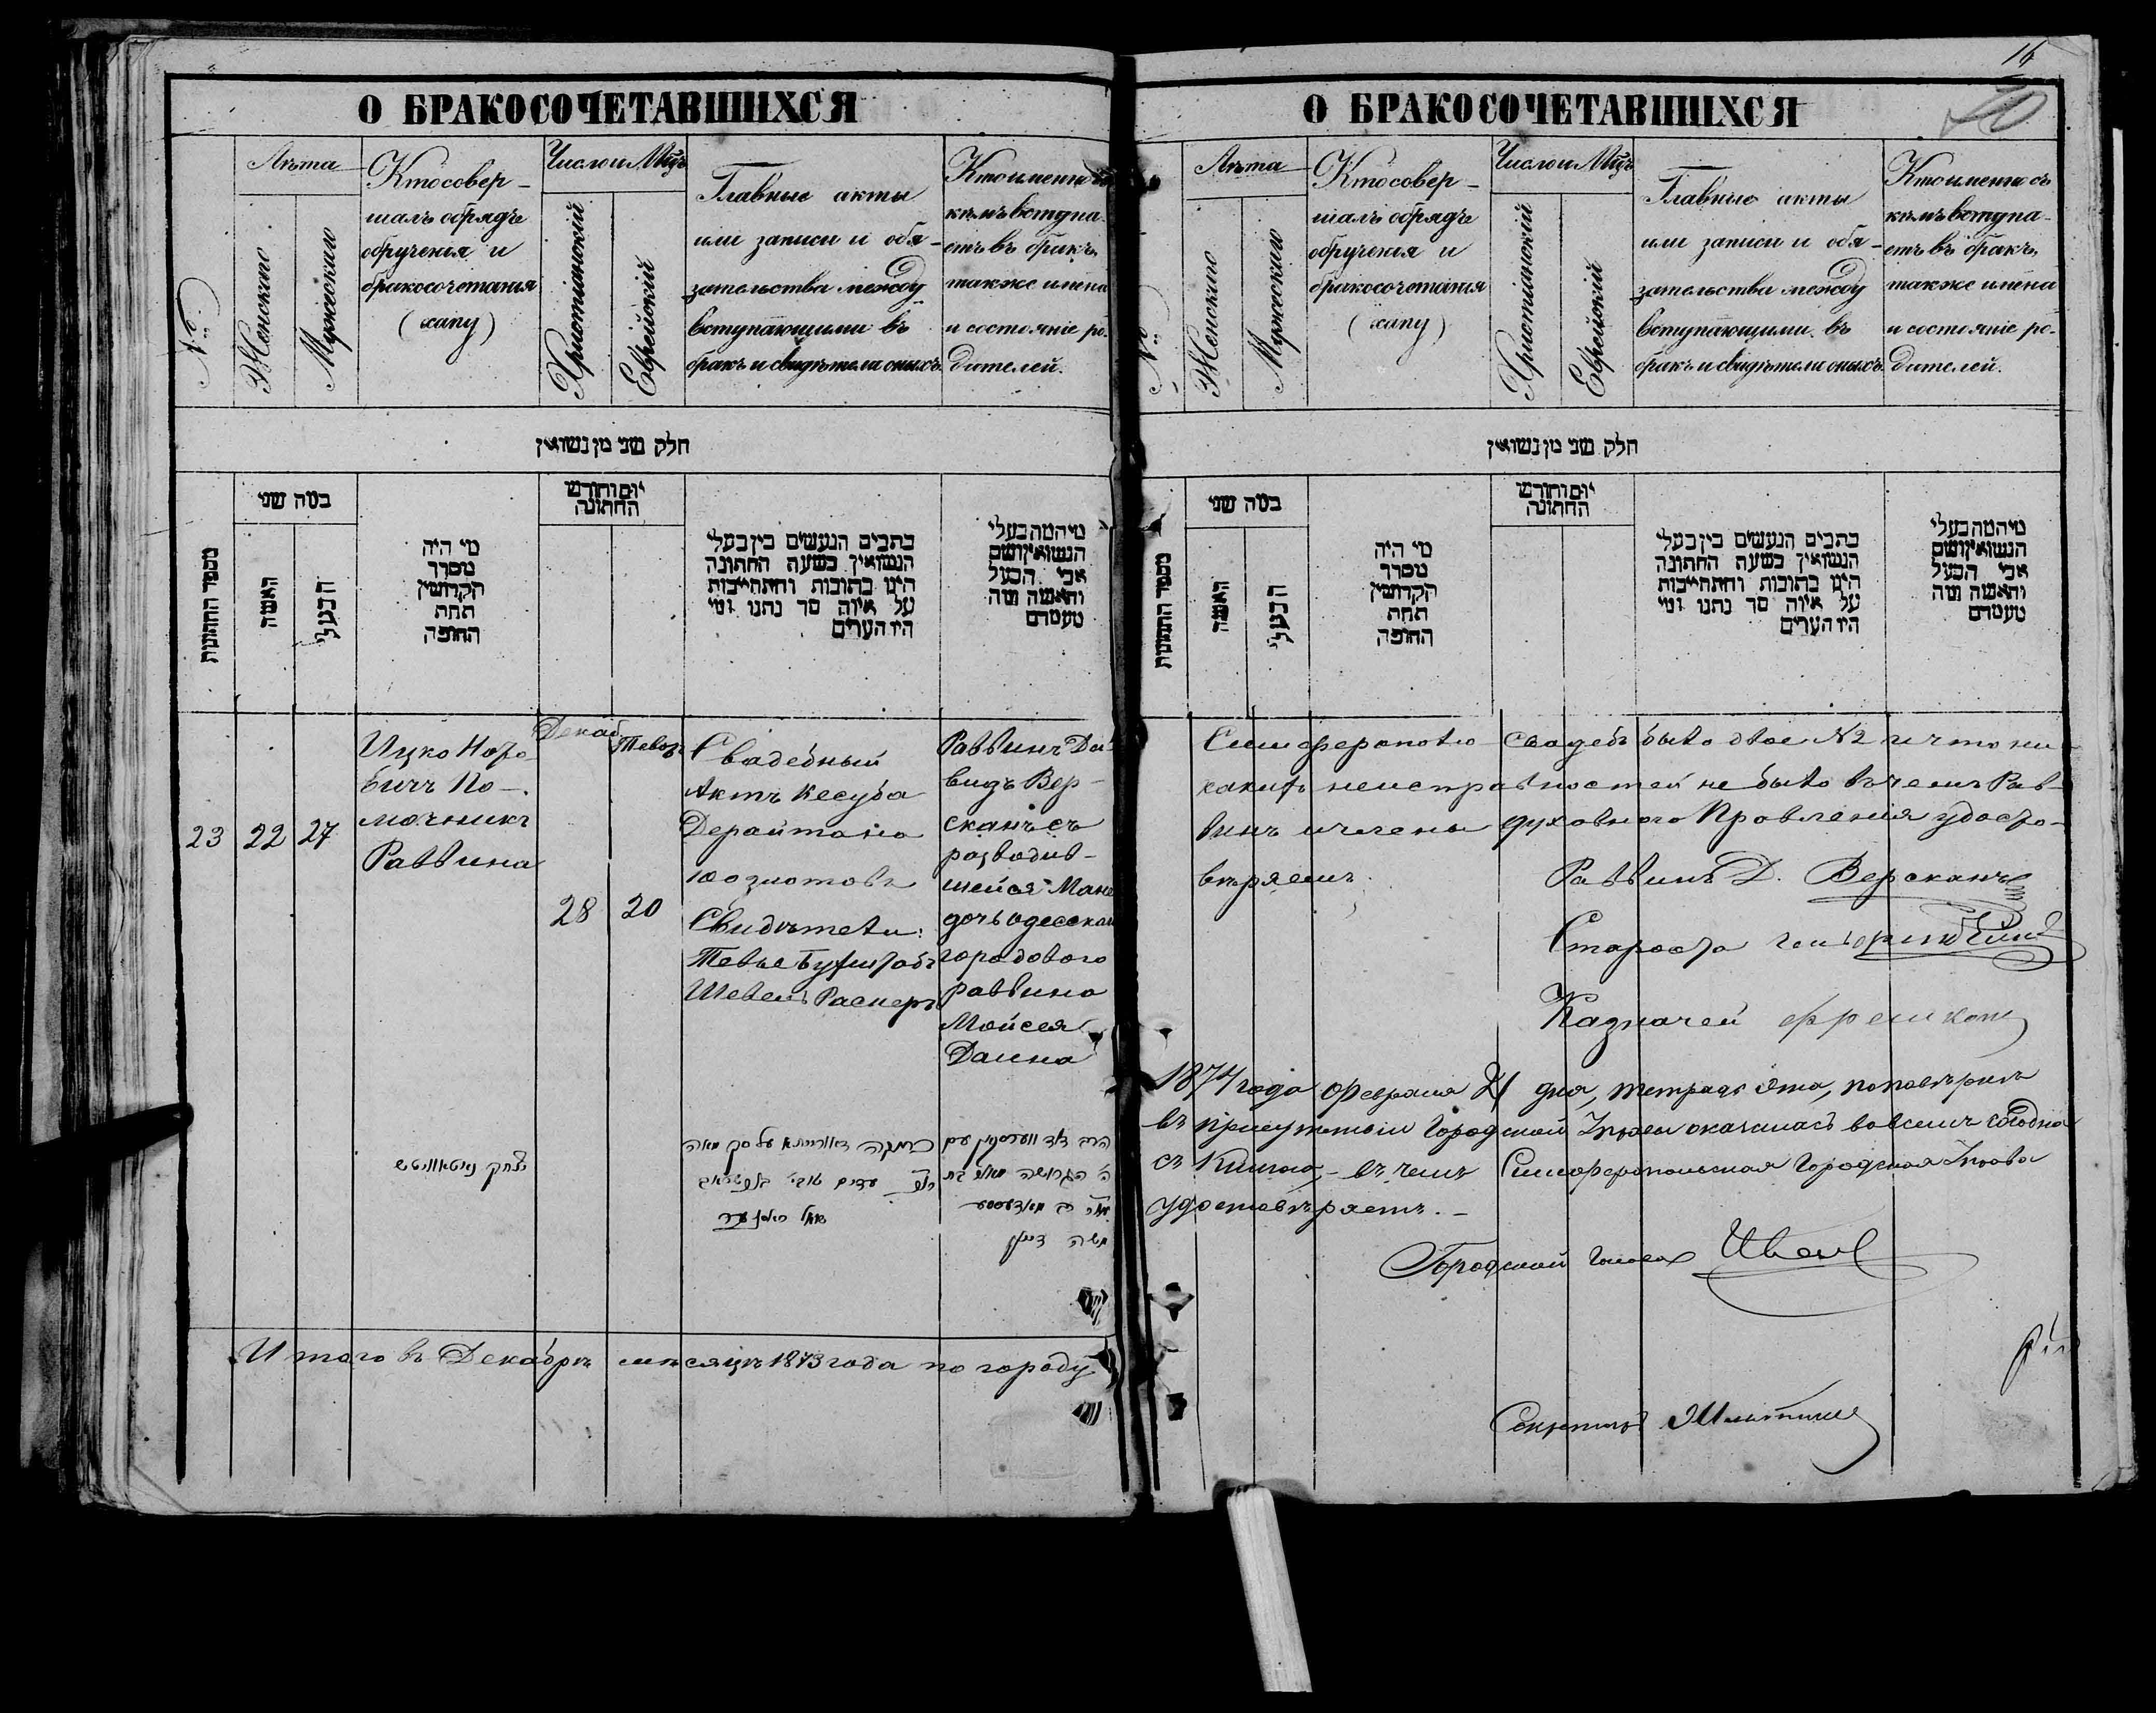 О БРАКОСОЧЕТАВШИХСЯ
№
Лѣта
Женскаго
Мужескаго
Кто совер-
шалъ обрядъ
обрученія и
бракосочетанія
(хапу)
Число и Мѣць
Христіанскій
Еврейскій
Главные акты
или записи и обя-
зательства между
вступающими въ
бракъ и свидѣтели оныхъ
Кто именно съ
кѣмъ вступа-
етъ въ бракъ,
также имена
и состояніе ро-
дителей.
חלק שני מן נשואין
מספר החתונות
במה שני
האשה
הבעלי
מי היה
מסדר
הקדושין
תחת
החופה
יום וחודש
החתונה
כתבים הנעשים בין בעלי
הנשואין בשעה החתונה
היינו כתובות והתחייבות
על איזה סך נתנו ומי
היו העדים
מי המה בעלי
הנשואין ושם
אבי הבעל
והאשה ומה
מעמדם
23
22
27
Ицко Норо-
вичъ По-
мочникъ
Раввина
Декаб
28
Тевэт
20
Свадебный
Актъ кесуба
Дерайтаіо
100 злотовъ
Свидѣтели:
Тевье
Шевель Раснеръ
Раввинъ Да-
видъ Вер-
сканъ съ
разводив-
шейся Мане
дочь одесскаго
городового
раввина
Мойсея
Даина
משה דיין
Итого въ Декабрѣ мѣсяцѣ 1873 года по городу
16
О БРАКОСОЧЕТАВШИХСЯ
№
Лѣта
Женскаго
Мужескаго
Кто совер-
шалъ обрядъ
обрученія и
бракосочетанія
(хапу)
Число и Мѣць
Христіанскій
Еврейскій
Главные акты
или записи и обя-
зательства между
вступающими въ
бракъ и свидѣтели оныхъ
Кто именно съ
кѣмъ вступа-
етъ въ бракъ,
также имена
и состояніе ро-
дителей.
חלק שני מן נשואין
מספר החתונות
במה שני
האשה
הבעלי
מי היה
מסדר
הקדושין
תחת
החופה
יום וחודש
החתונה
כתבים הנעשים בין בעלי
הנשואין בשעה החתונה
היינו כתובות והתחייבות
על איזה סך נתנו ומי
היו העדים
מי המה בעלי
הנשואין ושם
אבי הבעל
והאשה ומה
מעמדם
Симферополю свадебъ было двое №2 и что ни-
какихъ неисправностей не было въ чемъ Рав-
винъ и члены духовного Правленія удосто-
вѣряемъ.
Раввинъ Д. Версканъ
Староста
Казначей
1874 года Февраля 21 дня, тетрадь эта, по повѣркѣ
въ присутствіи Городской Управы оказалась во всемъ сходна
съ Книгою, – въ чемъ Симферопольская Городская Управа
удостовѣряетъ. –
Городской Голова
Секретарь